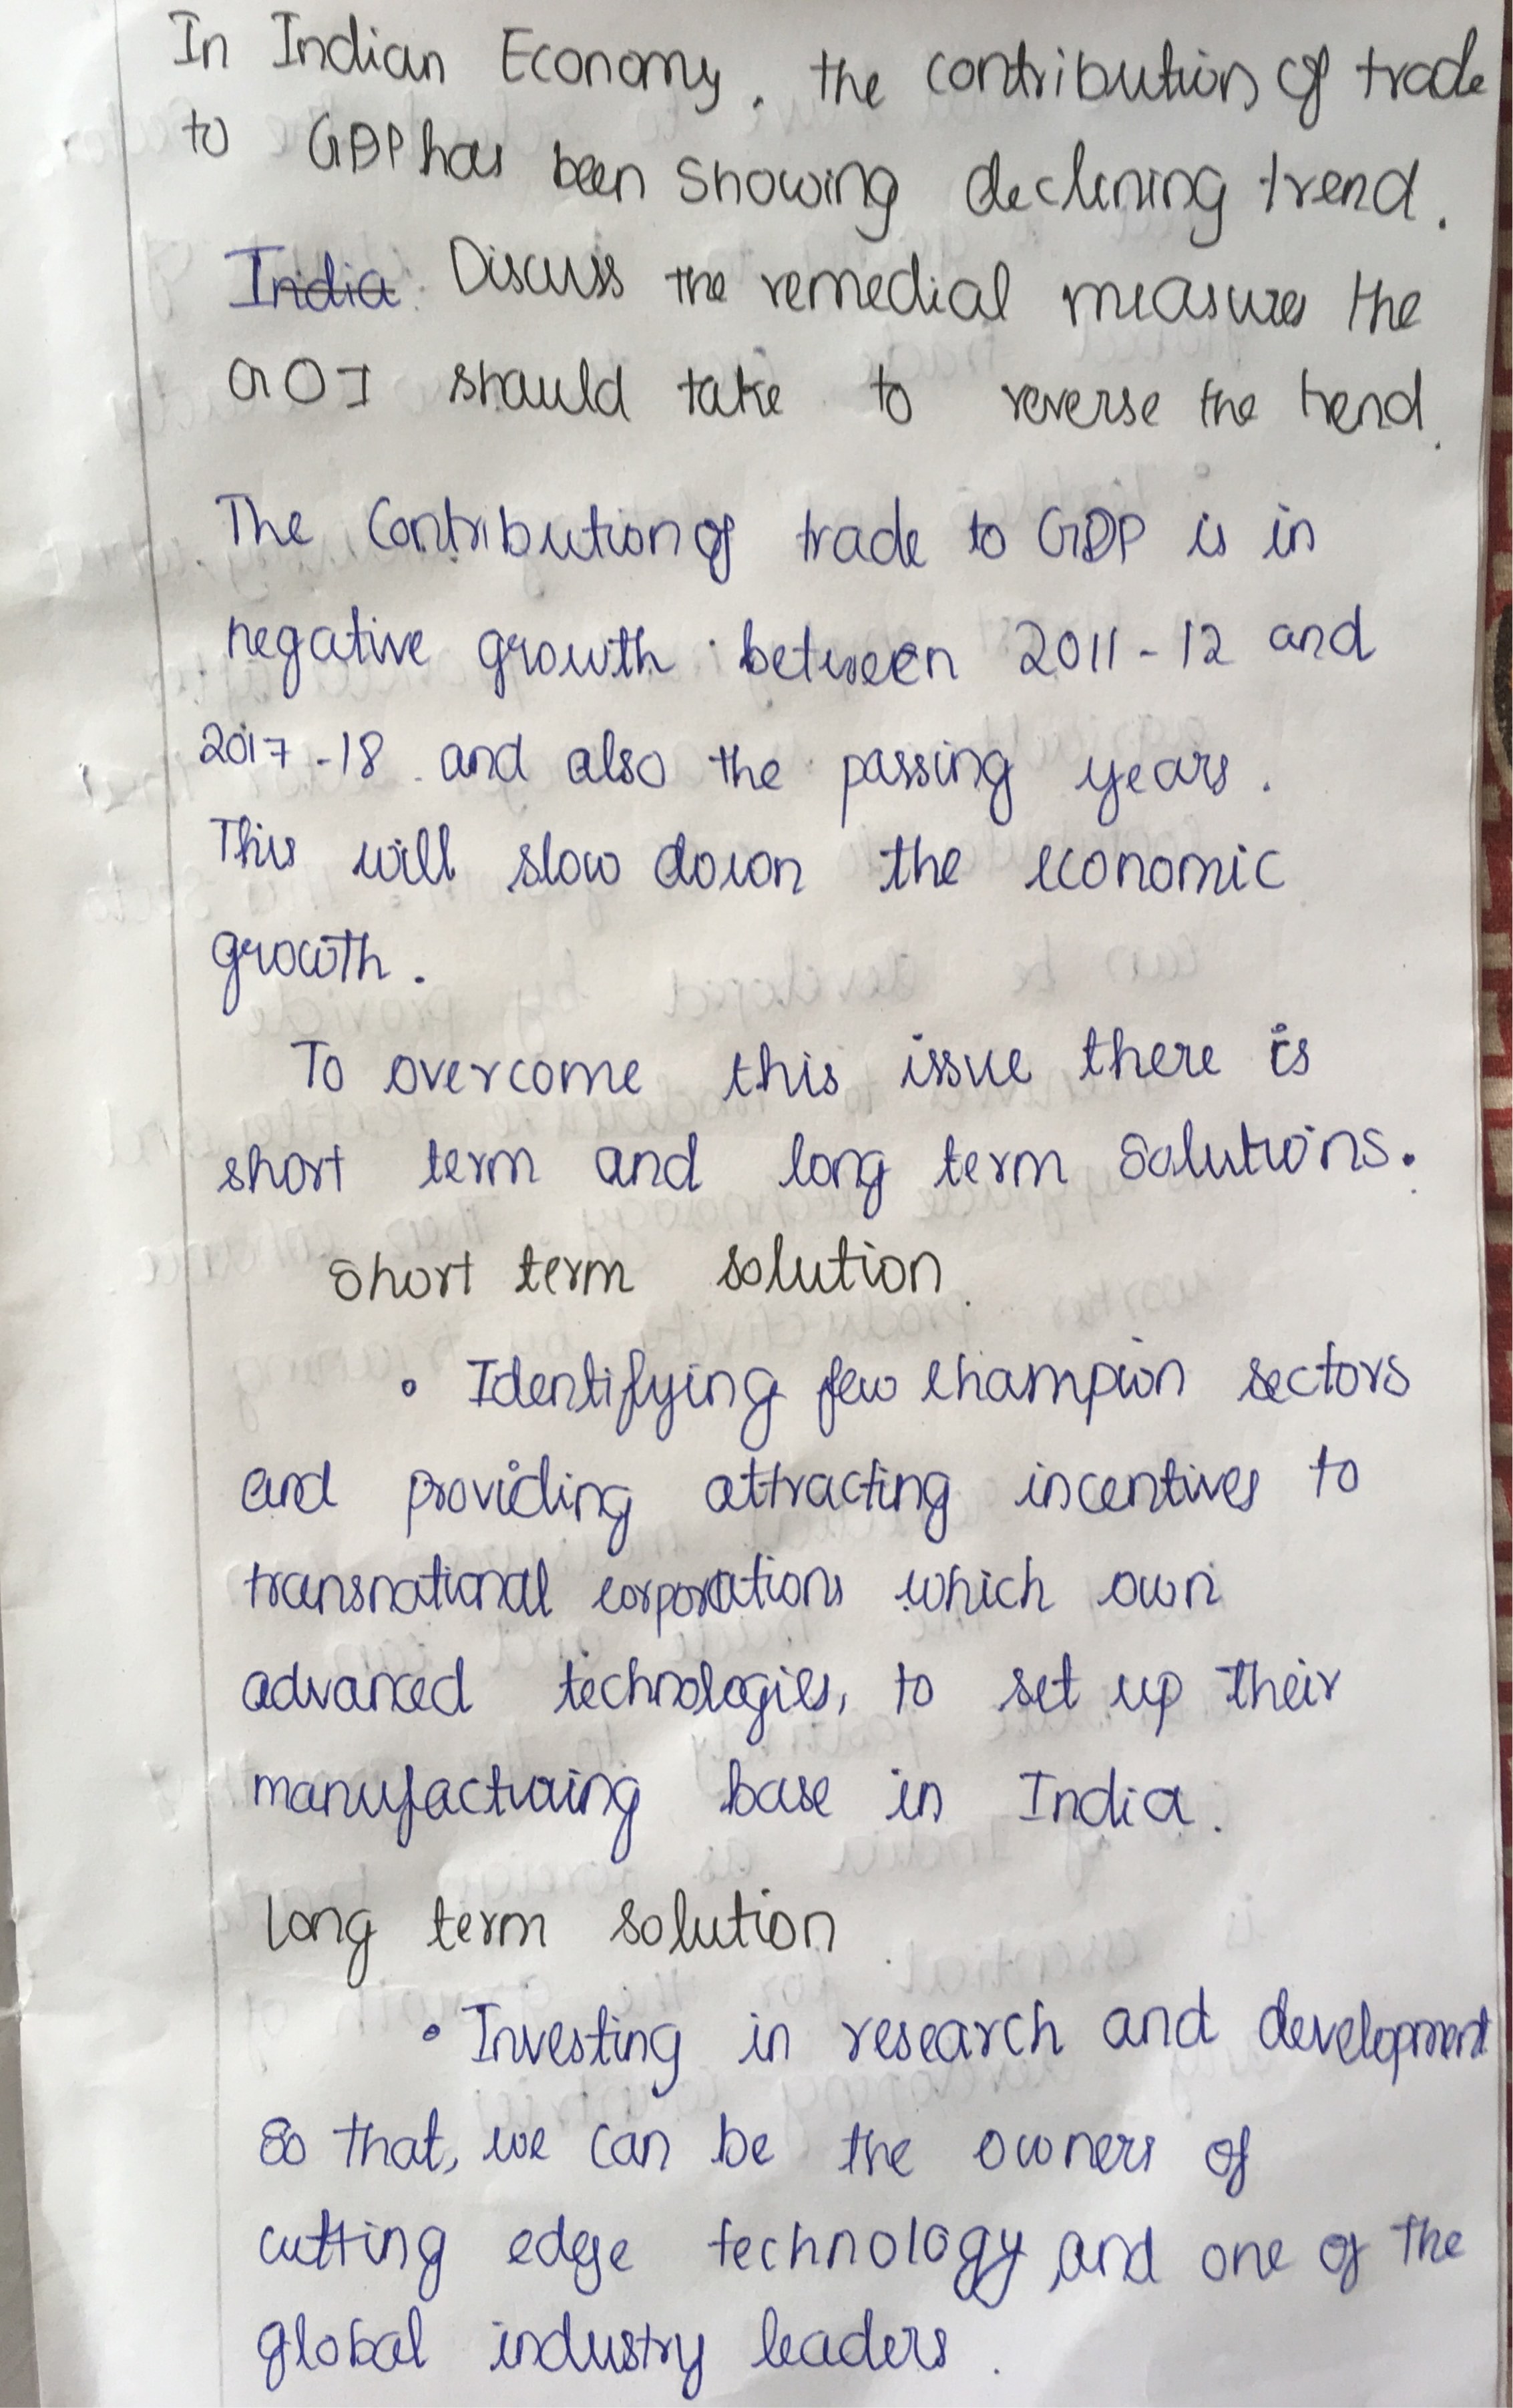 In Indian Economy, the contribution of trade
to GDP has been showing declining trend.
India Discuss the remedial measures the
GOI should take to reverse the trend.
The Contribution of trade to GDP is in
negative growth between 2011-12 and
2017-18 and also the passing years.
This will slow down the economic
growth.
To overcome this issue there is
short term and long term solutions.
Short term solution.
• Identifying few champion sectors
and providing attracting incentives to
transnational corporations which own
advanced technologies, to set up their
manufacturing base in India.
Long term solution.
• Investing in research and development
So that, we can be the owners of
cutting edge technology and one of the
global industry leaders.